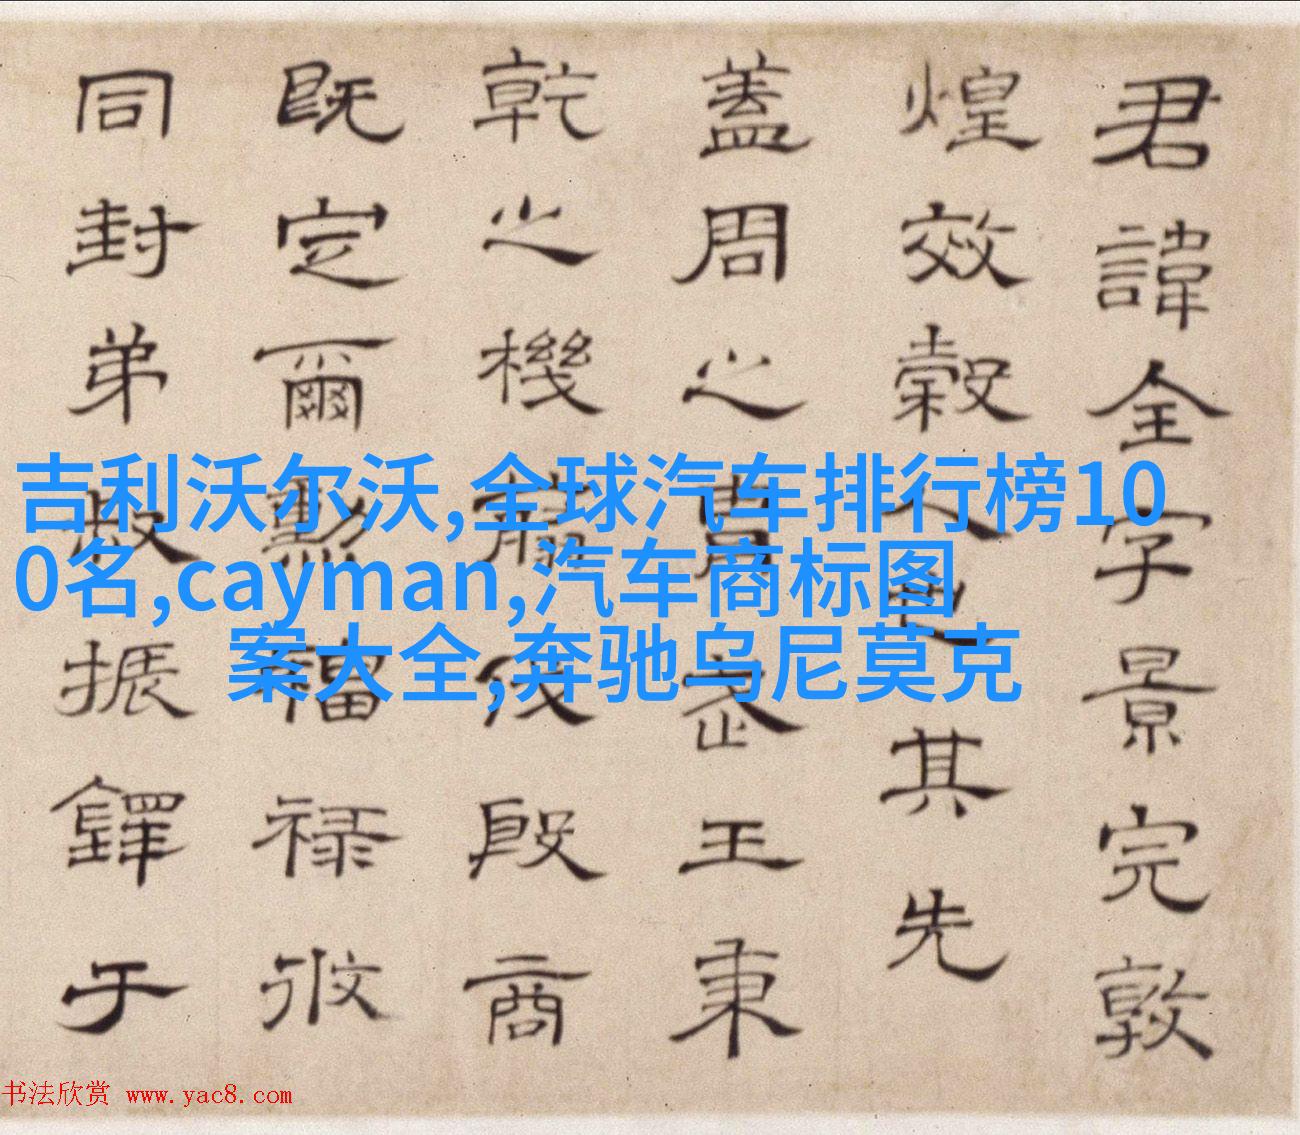 君諱全字景完敦
煌效穀人也其先
蓋周之胄武王秉
乾之機翦伐殷商
既定爾勳福祿攸
同封弟叔振鐸于
吉利沃尔沃,全球汽车排行榜10
0名,cayman,汽车商标图
案大全,奔驰乌尼莫克
书法欣赏 www.yac8.com